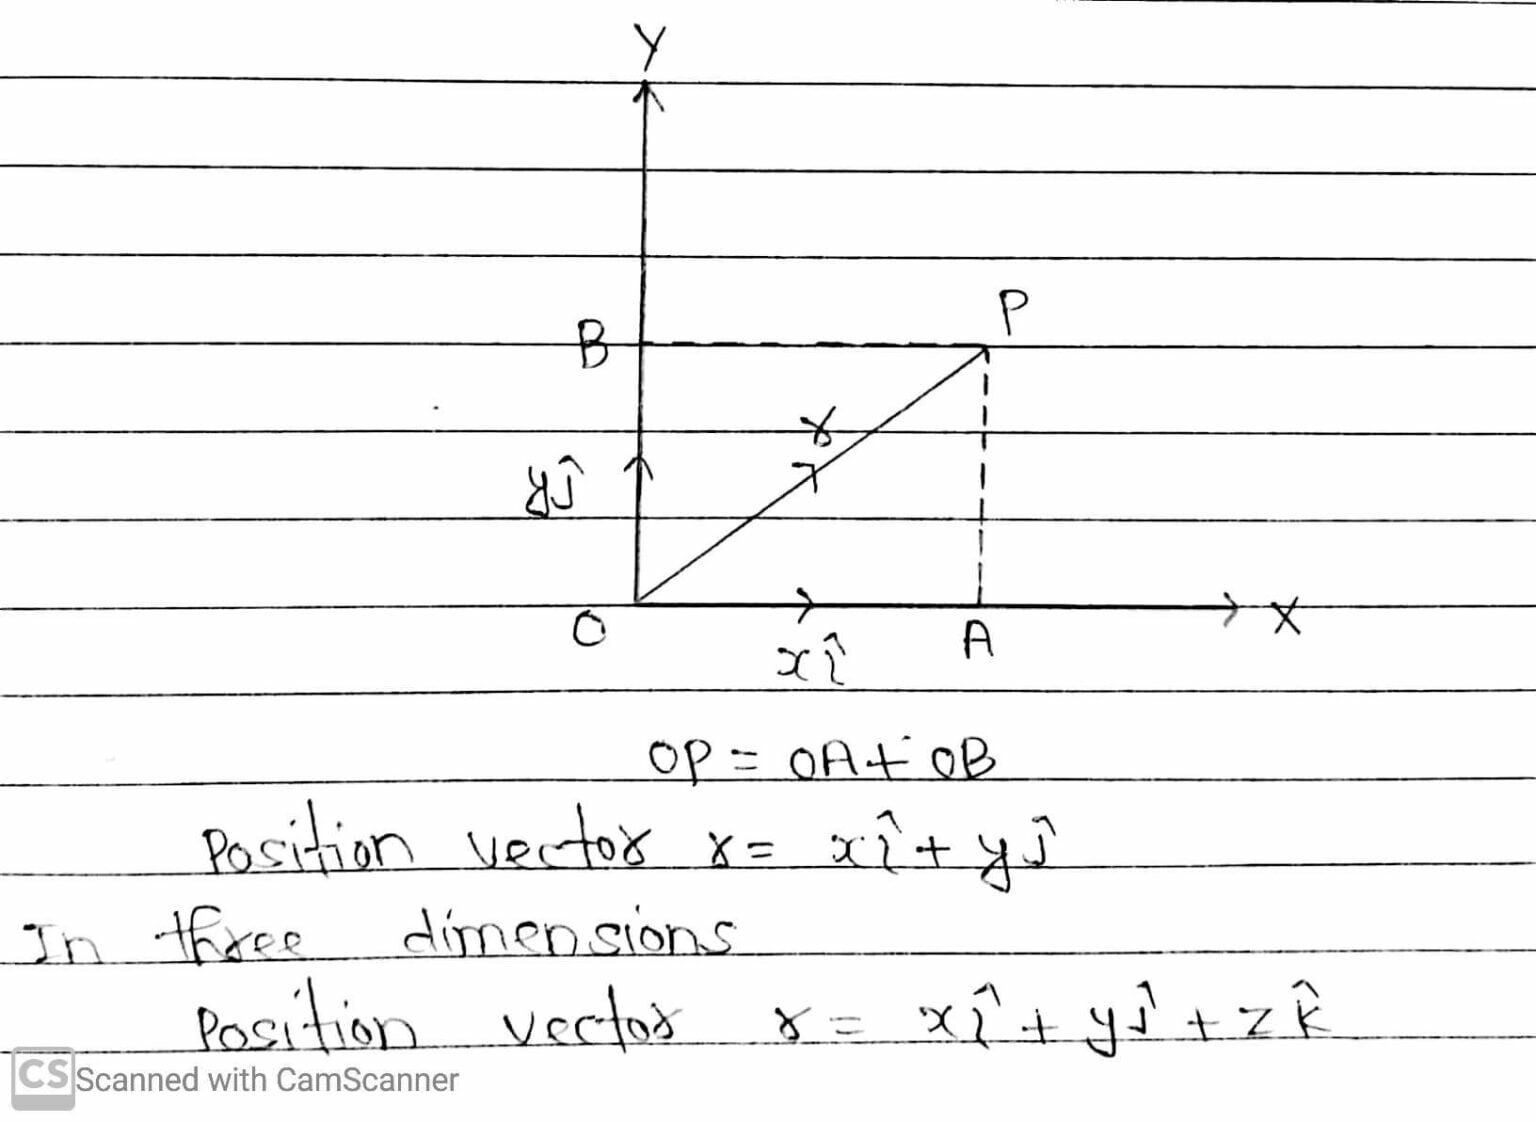 Y
B
P
r
yĵ
O
xî
A
X
OP = OA + OB
Position vector r = xî + yĵ
In three dimensions
Position vector r = xî + yĵ + zk̂
CS Scanned with CamScanner